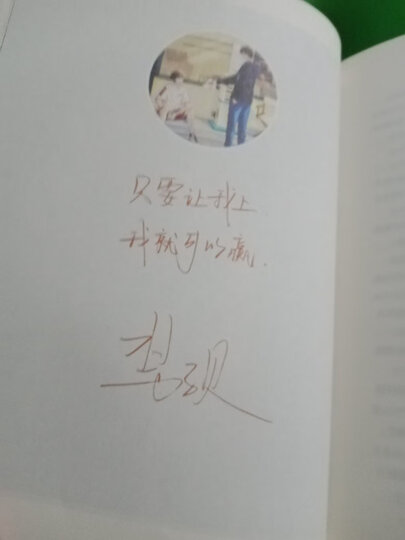 只要让我上
我就可以赢.